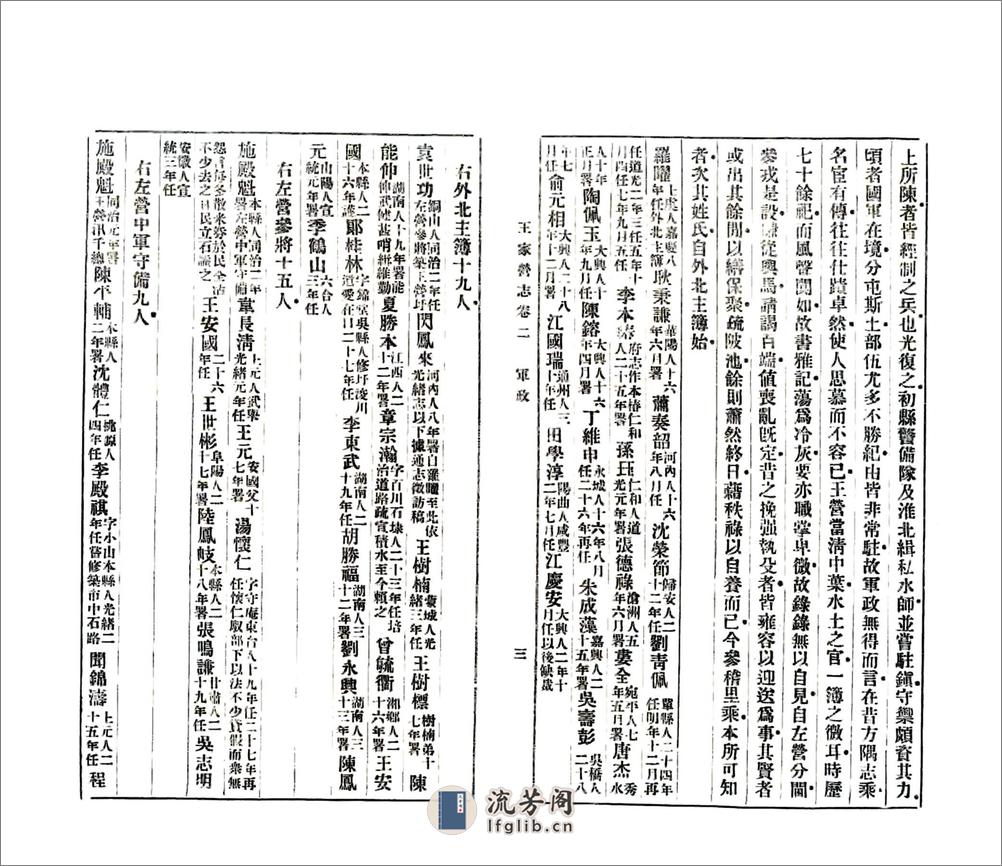 上所陳者皆經制之兵也光復之初縣警備隊及淮北緝私水師並嘗駐鎮守禦頗資其力
頃者國軍在境分屯斯土部伍尤多不勝紀由皆非常駐故軍政無得而言在昔方隅志乘
名宦有傳往往仕蹟卓然使人思慕而不容已王營當淸中葉水土之官一簿之微耳時歷
七十餘祀而風聲闃如故書雅記蕩爲冷灰要亦職掌卑微故錄錄無以自見自左營分閫
參戎是設從輿馬請謁百端値喪亂旣定昔之挽强執殳者皆雍容以迎送爲事其賢者
或出其餘閒以繕保聚疏陂池餘則蕭然終日藉秩祿以自養而已今參稽里乘本所可知
者次其姓氏自外北主簿始
羅曜上虞人嘉慶八年任外北主簿耿秉謙萊陽人十六年六月署蕭奏韶河內人十六年八月任沈榮節歸安人二十二年任劉靑佩單縣人二十四年任明年十二月再
任道光二年三任五年十月四任七年九月五任李本府志作本椿仁和人二十五年署孫玨仁和人道光元年署張德祿滄洲人五年六月署婁全宛平人七年九月署唐杰秀水
人十年正月署陶佩玉大興人十年九月任陳鎔大興人十六年四月署丁維申永城人十六年八月任二十六年再任朱成藻嘉興人二十五年署吳壽彭吳橋人二十八
年七月任俞元相大興人二十八年十二月任江國瑞通州人三十年任田學淳陽曲人咸豐二年七月任江慶安大興人二年十月任以後缺裁
王家營志卷二 軍政 三
右外北主簿十九人
袁世功銅山人同治二年任左營參將築土營圩閃鳳來河內人八年署自羅曜至此依光緒志以下據通志徵訪稿王樹楠蒙城人光緒三年任王樹標樹楠弟十七年署陳
能仲湖南人十九年署能仲武修甚哨緝維勤夏勝本江西人二十二年署章宗瀚字百川石埭人二十三年任培治道路疏宣積水至今賴之曾毓衢湘鄉人二十六年署王安
國本縣人二十六年護鄖桂林字錦堂吳縣人修圩浚川遺愛在口二十七年任李東武湖南人二十九年任胡勝福湖南人三十二年署劉永興湖南人三十三年署陳鳳
元山陽人宣統元年署季鶴山六合人三年任
右左營參將十五人
施殿魁本縣人同治二年署左營中軍守備韋長淸上元人武舉光緒元年任王元安國父十七年署湯懷仁字守庵東台人十九年任二十七年再任懷仁馭部下以法不少貸假而衆無
怨言每冬散米券於民全活不少去之日民立石誦之王安國二十六年任王世彬阜陽人二十七年署陸鳳岐本縣人二十八年署張鳴謙甘肅人二十九年任吳志明
安徽人宣統三年任
右左營中軍守備九人
施殿魁同治元年署王營汛千總陳平輔本縣人二年署沈體仁桃源人四年任李殿祺字小山本縣人光緒二年任嘗修築市中石路聞錦濤上元人二十五年任程
流芳阁
lfglib.cn